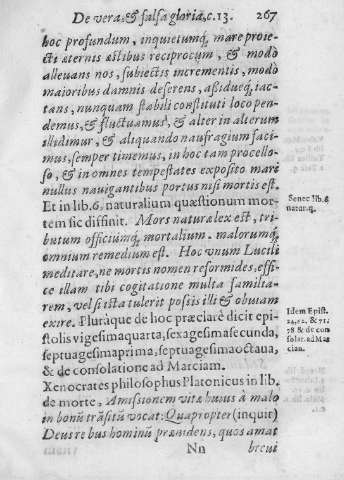 De vera, & falsa gloria, c. 13. 267
hoc profundum, inquietumq́; mare proie-
cti æternis æstibus reciprocum, & modò
alleuans nos, subiectis incrementis, modò
maioribus damnis deferens, aßidueq́; iac-
tans, nunquam stabili constituti loco pen-
demus, & fluctuamus, & alter in alterum
illidimur, & aliquando naufragium faci-
mus, semper timemus, in hoc tam procello-
so, & in omnes tempestates exposito mari
nullus nauigantibus portus nisi mortis est.
Et in lib. 6. naturalium quæstionum mor-
tem sic diffinit. Mors naturæ lex est, tri-
butum officiumq́; mortalium. malorumq́;
omnium remedium est. Hoc vnum Lucili
meditare, ne mortis nomen reformides, effi-
ce illam tibi cogitatione multa familia-
rem, vel si ita tulerit possis illi & obuiam
exire. Pluraque de hoc præclarè dicit epi-
stolis vigesimaquarta, sexagesimasecunda,
septuagesimaprima, septuagesimaoctaua,
& de consolatione ad Marciam.
Xenocrates philosophus Platonicus in lib.
de morte, Amissionem vitæ huius à malo
in bonū trāsitū vocat: Quapropter (inquit)
Deus rebus hominū præsidens, quos amat
Nn breui
Senec. lib. 6
natur. q.
Idem Epist.
24, 62, & 71.
78 & de con
solat. ad Mar
cian.